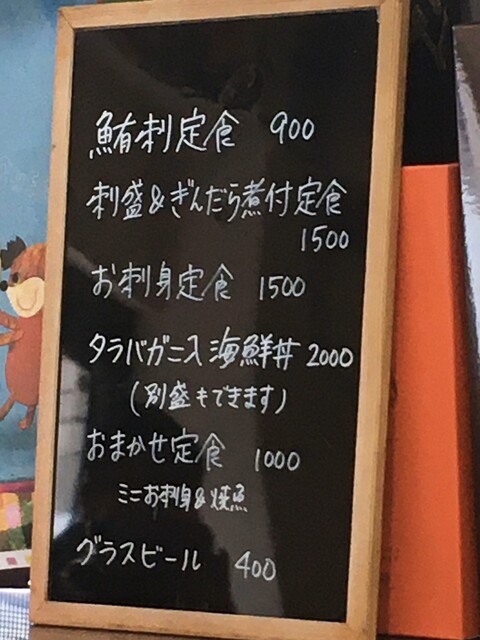 鮪刺定食 900
刺盛&ぎんだら煮付定食
1500
お刺身定食 1500
タラバガニ入海鮮丼 2000
(別盛もできます)
おまかせ定食 1000
ミニお刺身&焼魚
グラスビール 400